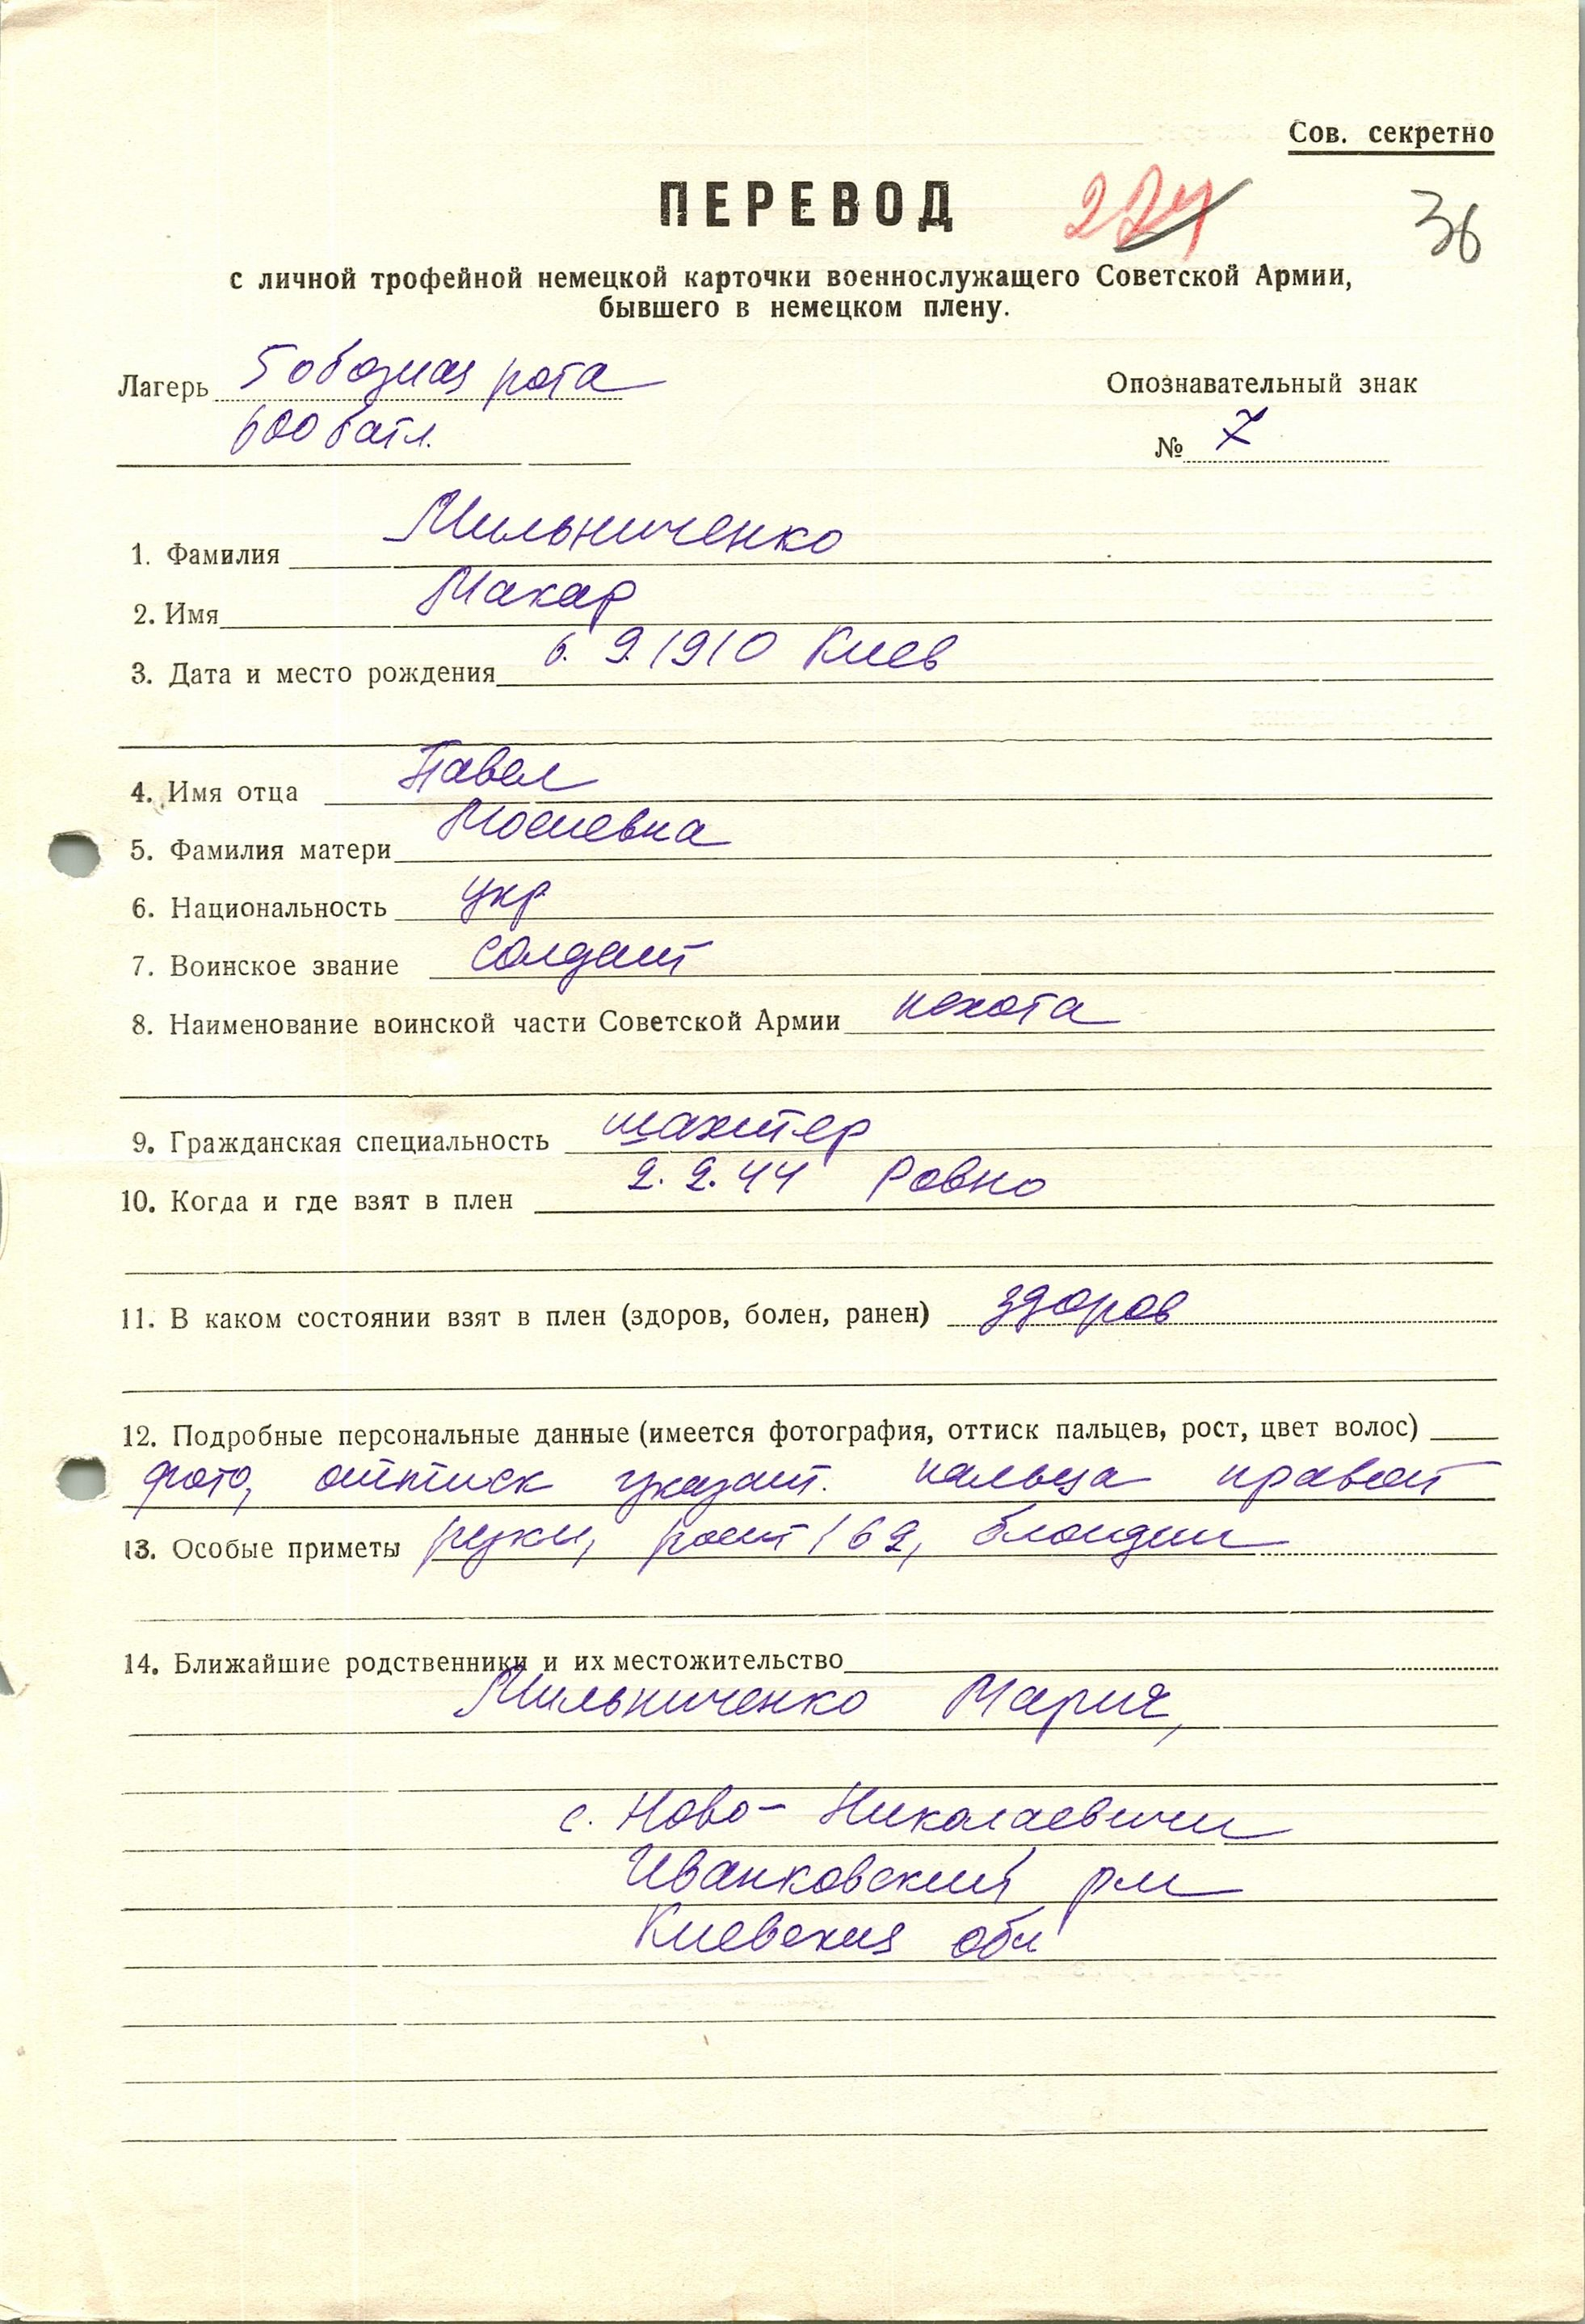 Сов. секретно
ПЕРЕВОД 274 36
с личной трофейной немецкой карточки военнослужащего Советской Армии,
бывшего в немецком плену.
Лагерь 5 обозная рота
600 батл.
Опознавательный знак
№ 7
1. Фамилия Мильниченко
2. Имя Макар
3. Дата и место рождения 6. 9. 1910 Киев
4. Имя отца Павел
5. Фамилия матери Мосиевна
6. Национальность укр
7. Воинское звание солдат
8. Наименование воинской части Советской Армии пехота
9. Гражданская специальность шахтер
10. Когда и где взят в плен 2. 2. 44 Ровно
11. В каком состоянии взят в плен (здоров, болен, ранен) здоров
12. Подробные персональные данные (имеется фотография, оттиск пальцев, рост, цвет волос)
фото, оттиск указат. пальца правой
13. Особые приметы руки, рост 169, блондин
14. Ближайшие родственники и их местожительство
Мильниченко Мария,
с. Ново- Николаевичи
Иванковский рн
Киевская обл